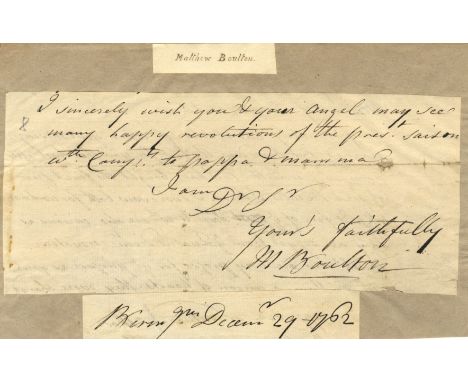 Matthew Boulton.
8
I sincerely wish you & your Angel may see
many happy revolutions of the pres.t saison
wth Comp.ts to pappa & mamma
I am Dr Sr
Your's faithfully
M Boulton
Decemr 29 1762